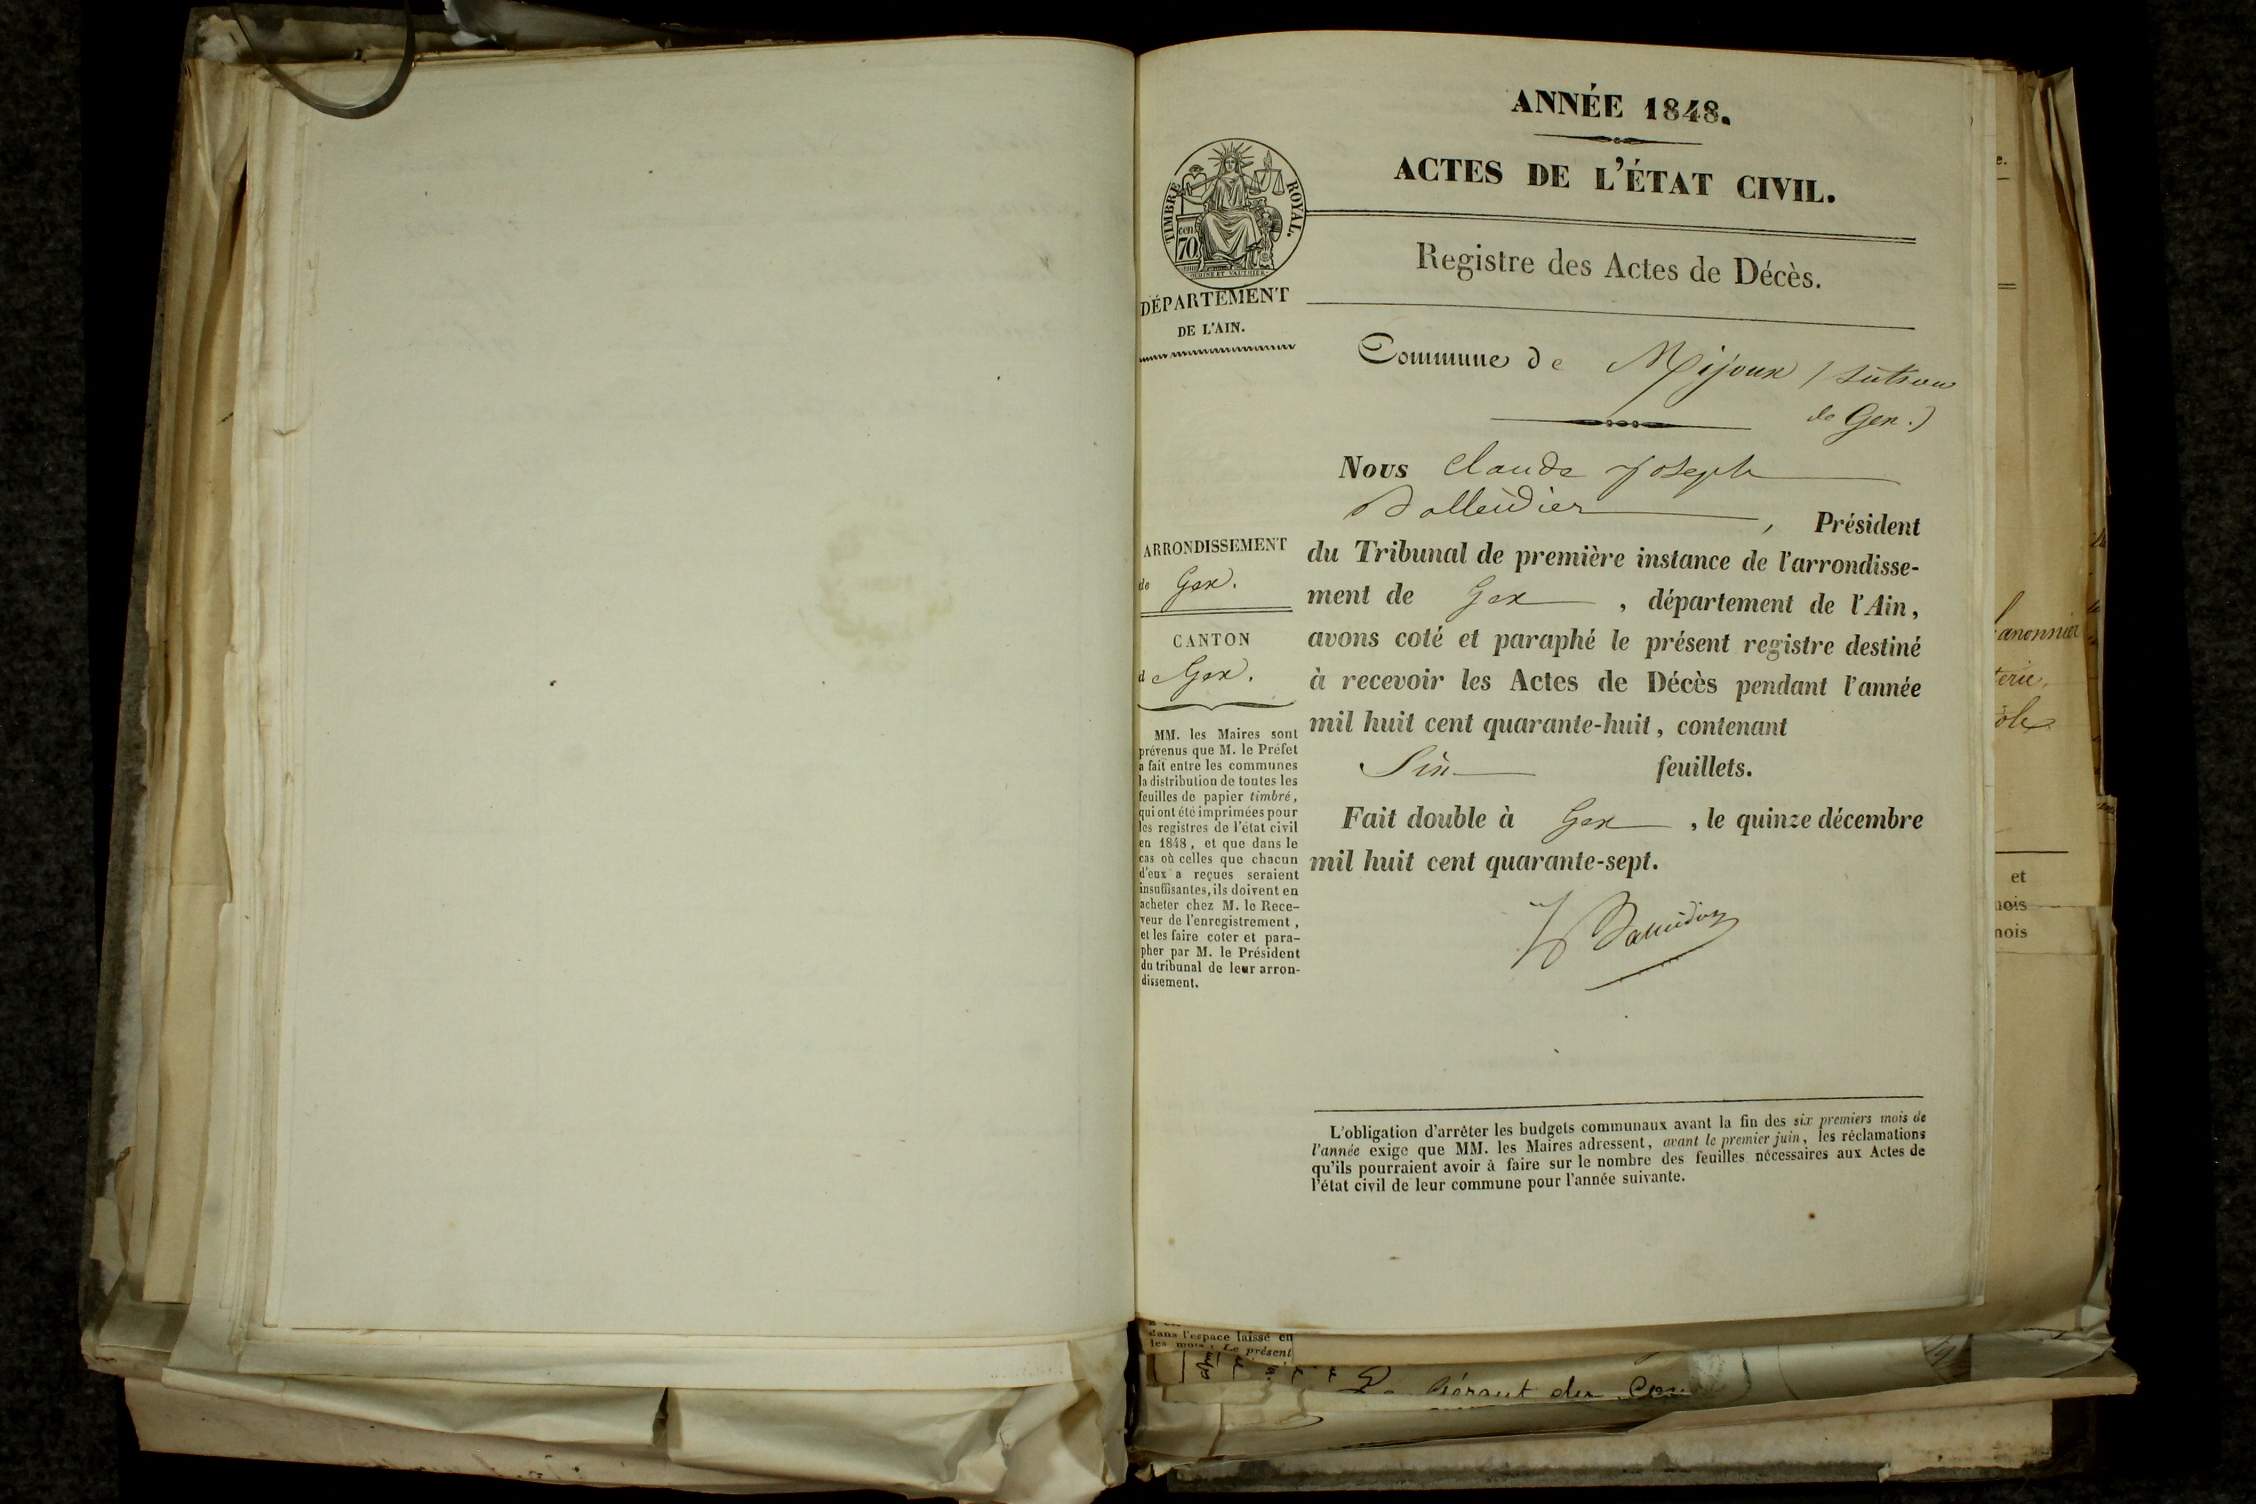 ANNÉE 1848.
ACTES DE L'ÉTAT CIVIL.
TIMBRE ROYAL.
cen
70
Registre des Actes de Décès.
DÉPARTEMENT
DE L'AIN.
Commune de Mijoux (section
de Gex.)
Nous Claude Joseph
Balleidier, Président
du Tribunal de première instance de l'arrondisse-
ment de Gex, département de l'Ain,
avons coté et paraphé le présent registre destiné
à recevoir les Actes de Décès pendant l'année
mil huit cent quarante-huit, contenant
Six feuillets.
Fait double à Gex, le quinze décembre
mil huit cent quarante-sept.
Balleidier
ARRONDISSEMENT
de Gex.
CANTON
de Gex.
MM. les Maires sont
prévenus que M. le Préfet
a fait entre les communes
la distribution de toutes les
feuilles de papier timbré,
qui ont été imprimées pour
les registres de l'état civil
en 1848, et que dans le
cas où celles que chacun
d'eux a reçues seraient
insuffisantes, ils doivent en
acheter chez M. le Rece-
veur de l'enregistrement,
et les faire coter et para-
pher par M. le Président
du tribunal de leur arron-
dissement.
L'obligation d'arrêter les budgets communaux avant la fin des six premiers mois de
l'année exige que MM. les Maires adressent, avant le premier juin, les réclamations
qu'ils pourraient avoir à faire sur le nombre des feuilles nécessaires aux Actes de
l'état civil de leur commune pour l'année suivante.
dans l'espace laissé en
les mots : Le présent
et
mois
mois